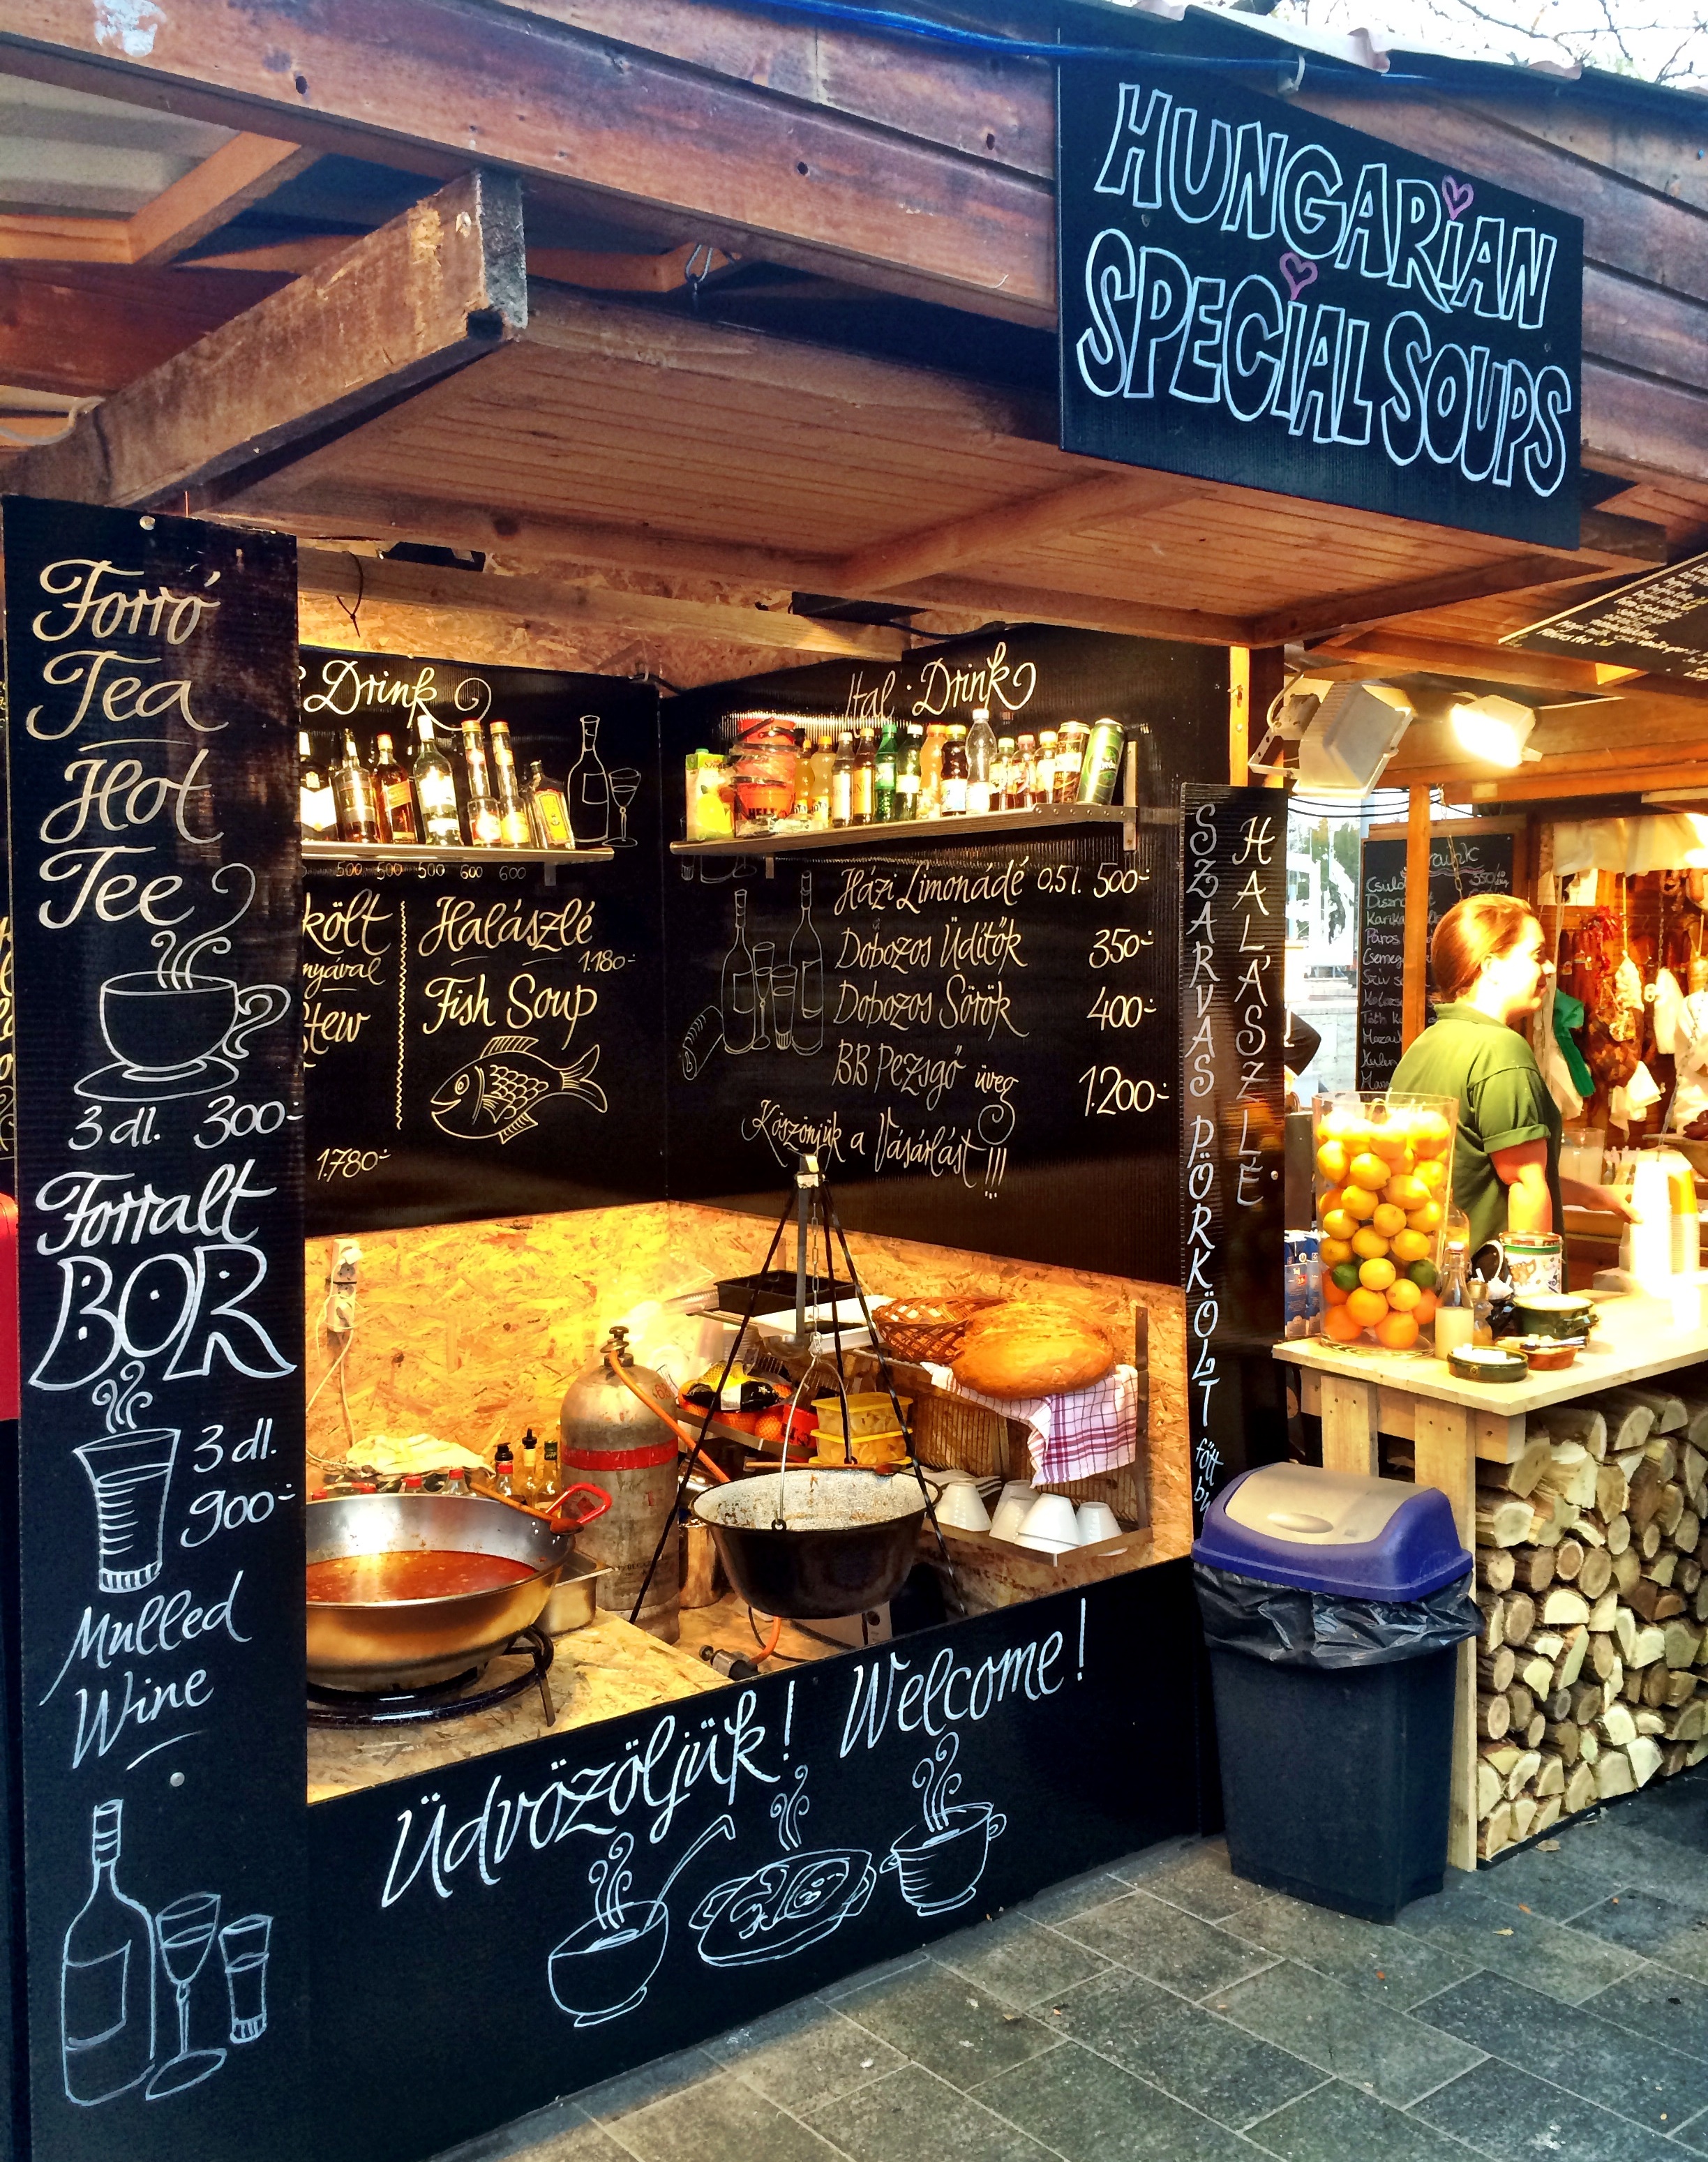 HUNGARiAN
SPECiAL SOUPS
Forró
Tea
Hot
Tee
3 dl. 300.-
Forralt
BOR
3 dl.
900.-
Mulled
Wine
Drink
500 500 500 600 600
költ
nyával
tew
1.780.-
Halászlé
1.180.-
Fish Soup
Ital • Drink
Házi Limonádé 0,5 l. 500.-
Dobozos Üdítők 350.-
Dobozos Sörök 400.-
BB Pezsgő üveg 1.200.-
Köszönjük a Vásárlást!!!
SZARVAS PÖRKÖLT
HALÁSZLÉ
Üdvözöljük! Welcome!
Páros